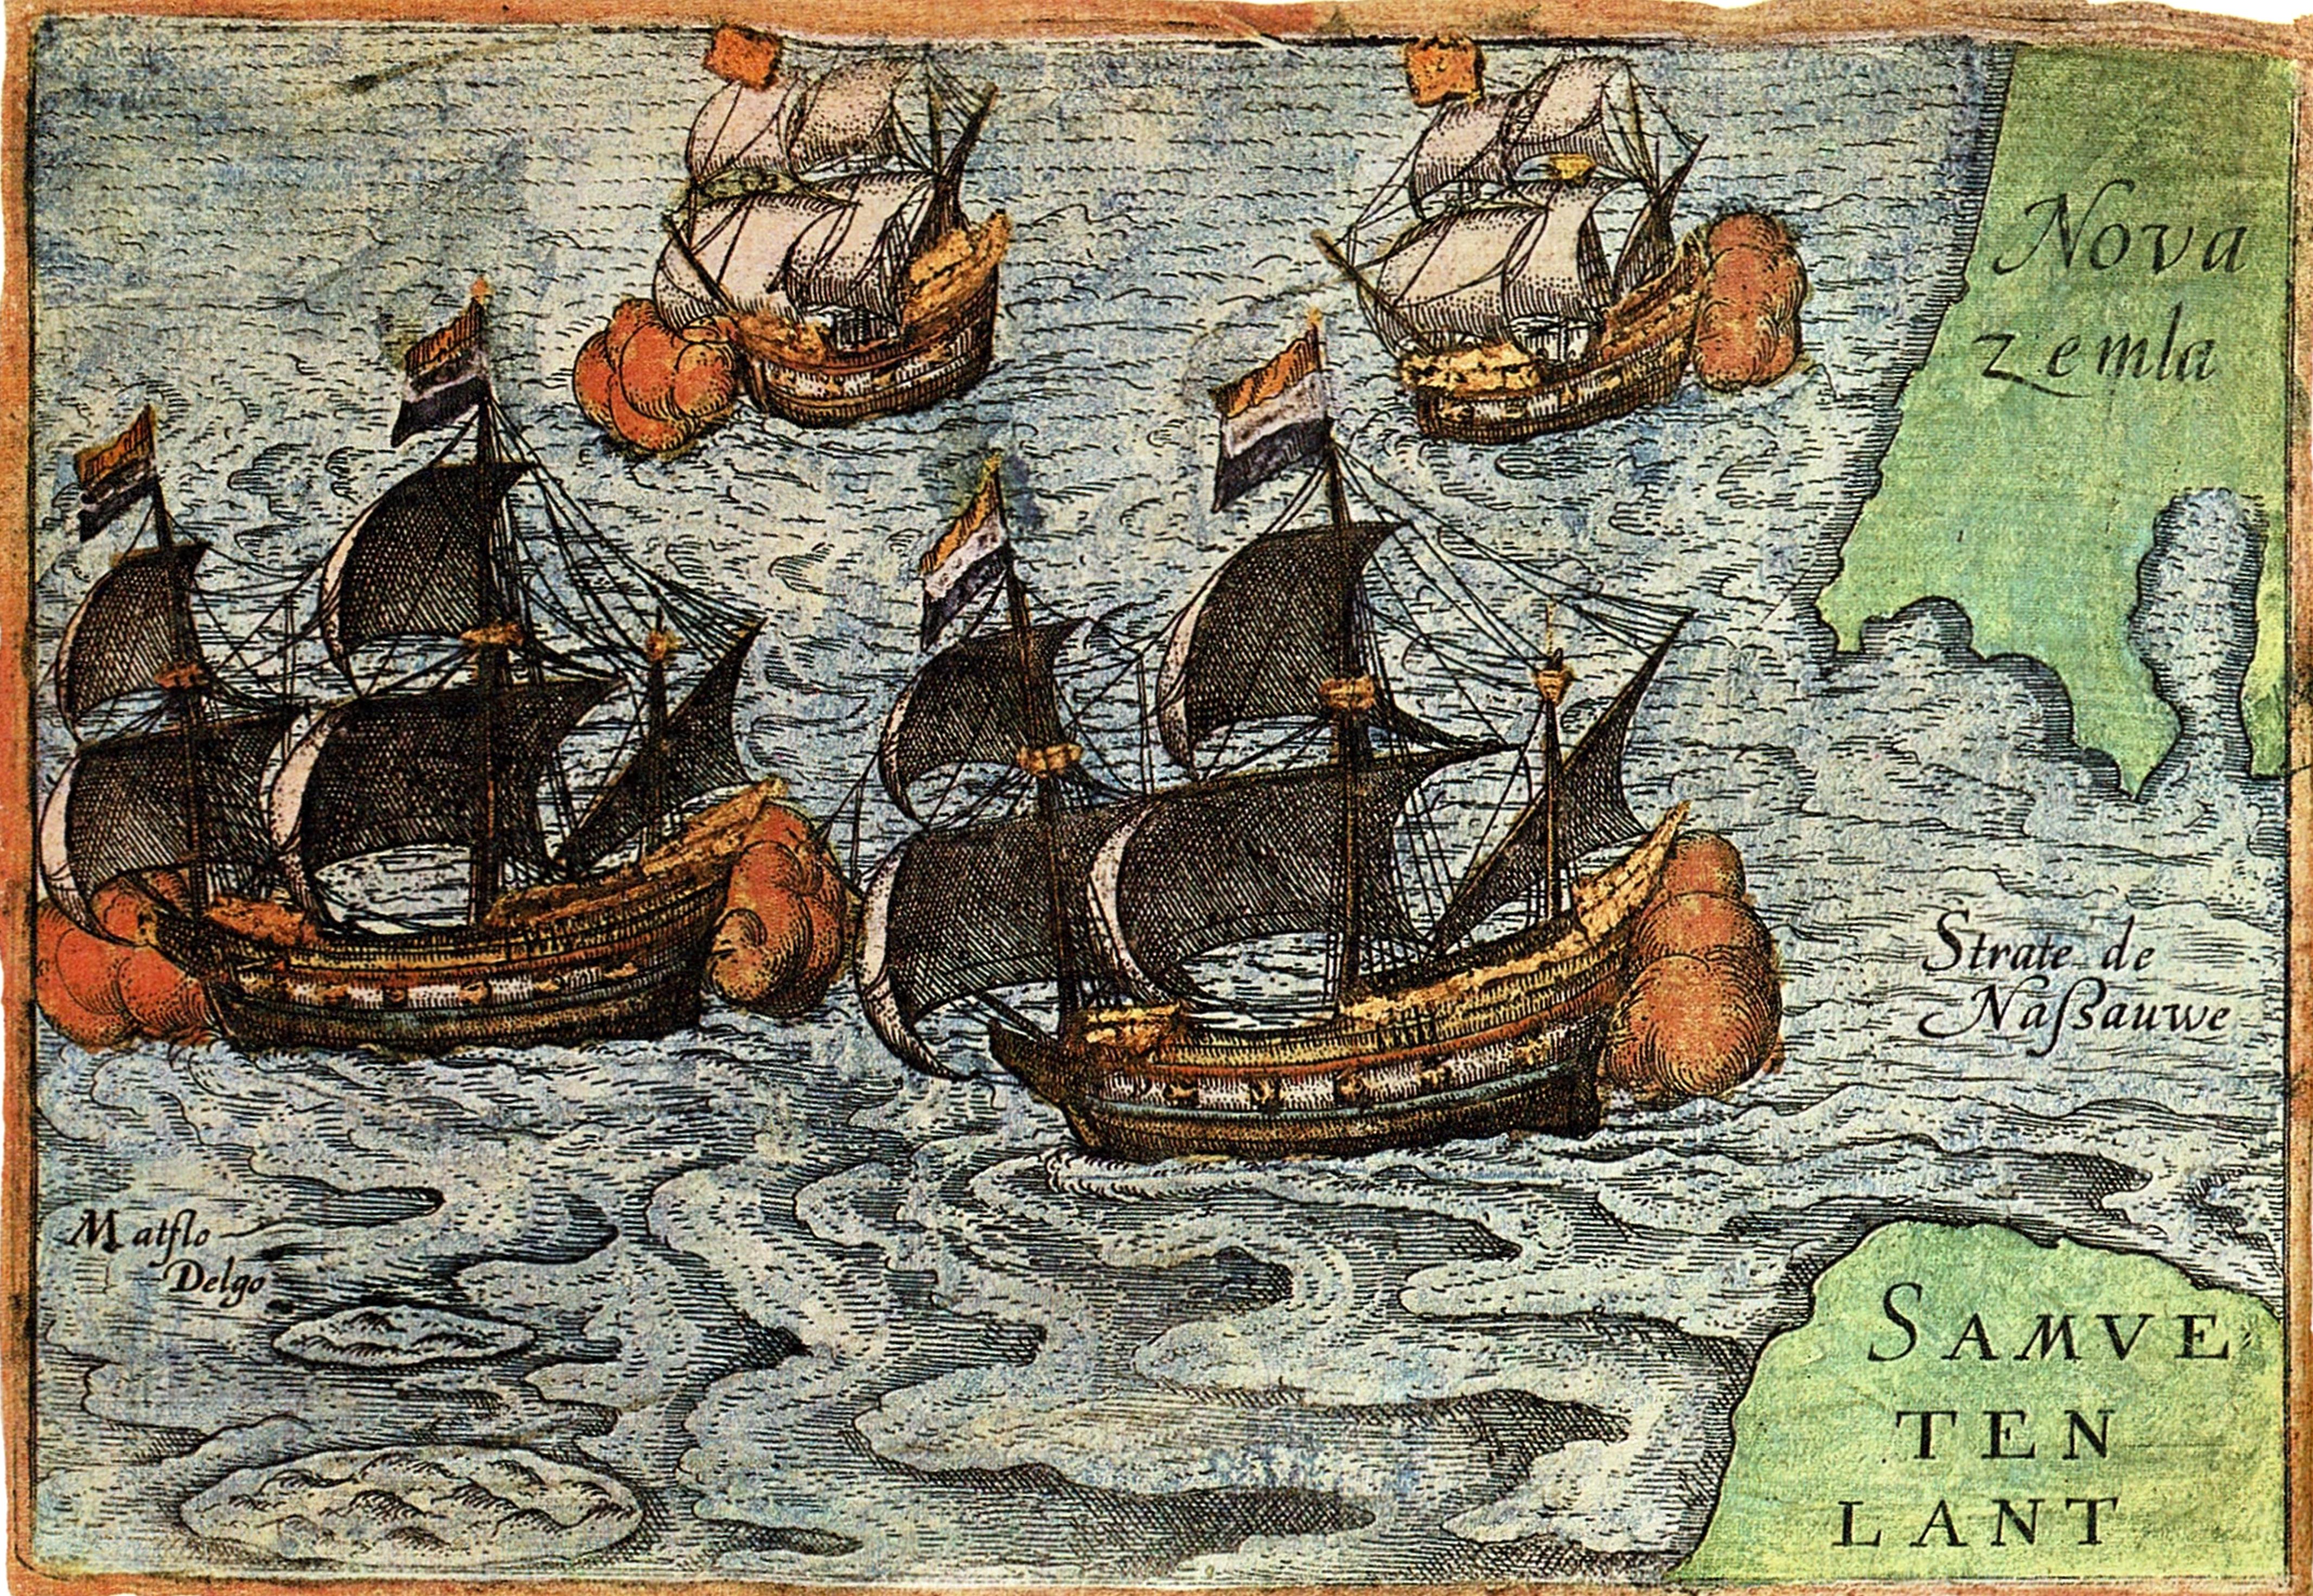 Nova
Zemla
Strate de
Naſsauwe
Matflo
Delgo
SAMVE
TEN
LANT